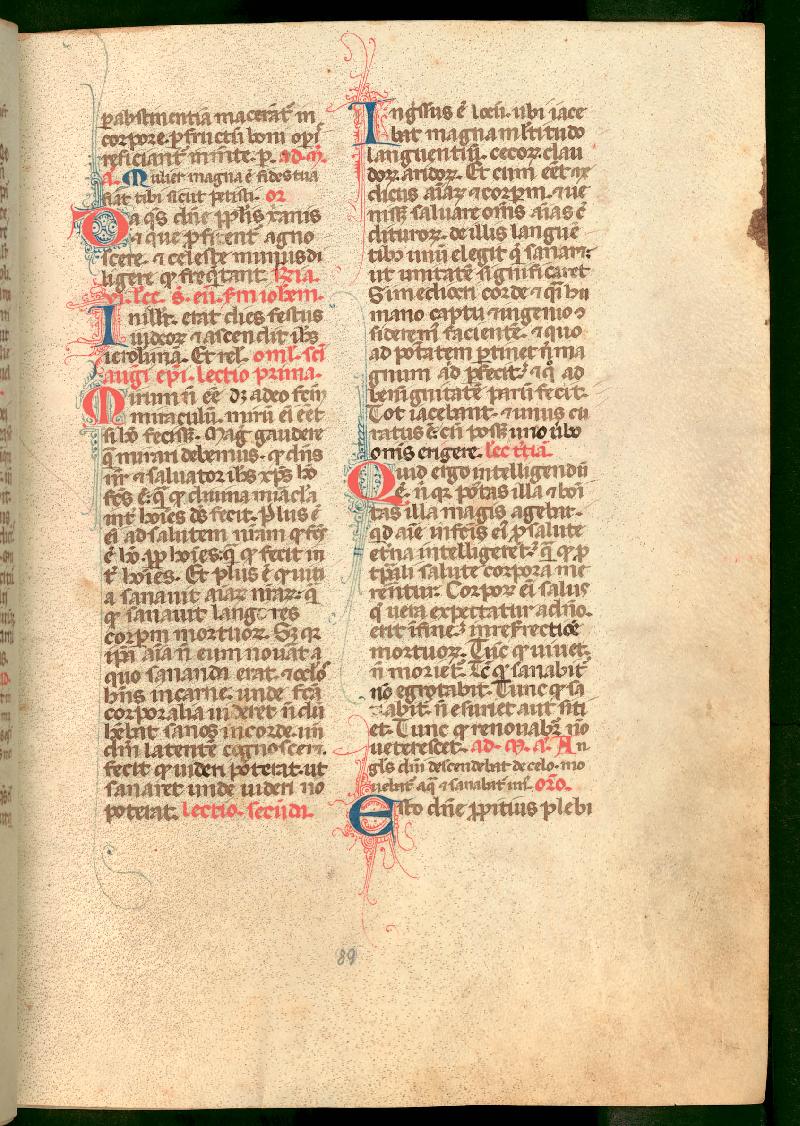 p abstinentia macerat̄ in
corpore. p fructū boni opī
reficiant̄ in m̄te. p. ad. m̄.
a. Mulier magna ē fides tua
fiat tibi sicut petisti. or
Da q̄s dn̄e pp̄lis xanis
⁊ que p̄fitent̄ agno
scere. ⁊ celeste munus di
ligere q̄ freq̄tant. fr̄ia.
vi. lec. s. eū. sm̄ ioh̄em.
In illo t̄. erat dies festus
iudeoꝝ ⁊ ascendit ih̄s
ierosolimā. Et rel. omł. sc̄i
augī ep̄i. lectio prima.
Mirum n̄ eē dꝫ a deo fcm̄
miraculū. mirū ei eēt
si hō fecissꝫ. Mag̛ gaudere
q̄ mirari debemus. q̄ dn̄s
nr̄ ⁊ saluator ih̄s xp̄s hō
fc̄s ē. q̄ q̄ diuina mirac̄la
int̄ hoīes ds̄ fecit. Plus ē
ei ad salutem nr̄am q̄ fc̄s
ē hō. pp̄ hoīes. q̄ q̄ fecit in
t̄ hoīes. Et plus ē q̄ uiti
a sanauit aīaꝝ nr̄aꝝ. q̄
q̄ sanauit lang res
corpm̄ mortuoꝝ. Sꝫ qꝛ
ip̄a aīa n̄ eum nouat̄ a
quo sananda erat. ⁊ oc̄los
hn̄s in carne. unde fc̄a
corporalia uideret n̄ dū
hēbat sanos in corde. un̄
dm̄ latentē cognoscer̄.
fecit q̄ uideri poterat. ut
sanaret unde uideri no
poterat. lectio. secūdi.
Ingssus ē locū. ubi iace
bat magna ml̄titudo
languentiū. cecoꝝ. clau
doꝝ. aridoꝝ. Et cum eēt m̄
dicus aīaꝝ ⁊ corpm̄. ⁊ ue
nissꝫ saluare om̄s aīas c̄
dituroꝝ. de illis languē
tibꝫ unū elegit q̄ sanar̄:
ut unitatē significaret
Si mediocri corde ⁊ q̄i hu
mano captu ⁊ ingenio ɔ
siderem̄ facientē. ⁊ quo
ad po̅tatem p̄tinet n̄ ma
gnum ad p̄fecit. ⁊ q̄ ad
benignitatē parū fecit.
Tot iacebant. ⁊ unus cu
ratus ē. cū possꝫ uno ūbo
om̄s erigere. lec t̄tia.
Quid ergo intelligendū
ē. n̄ qꝛ po̅tas illa ⁊ boni
tas illa magis agebat.
qd̄ aīe in fc̄is ei p̄ salute
et̄na intelligeret. q̄ q̄ p
tp̄ali salute corpora me
rentur. Corpoꝝ ei salus
q̄ uera expectatur a dn̄o.
erit in fine. ī resrectiōe
mortuoꝝ. Tūc q̄ uiuet.
n̄ moriet̄. Tc̄ q̄ sanabit̄
nō egrotabit. Tunc q̄ sa
abit̄. n̄ esuriet aut siti
et. Tunc q̄ renouabr̄ nō
ueterescet. ad. m̄. a. An
gl̄s dm̄ descendebat de celo. mo
uebat̄ aq̄ ⁊ sanabat̄ un̄. or̄o.
Esto dn̄e p̄pitius plebi
89